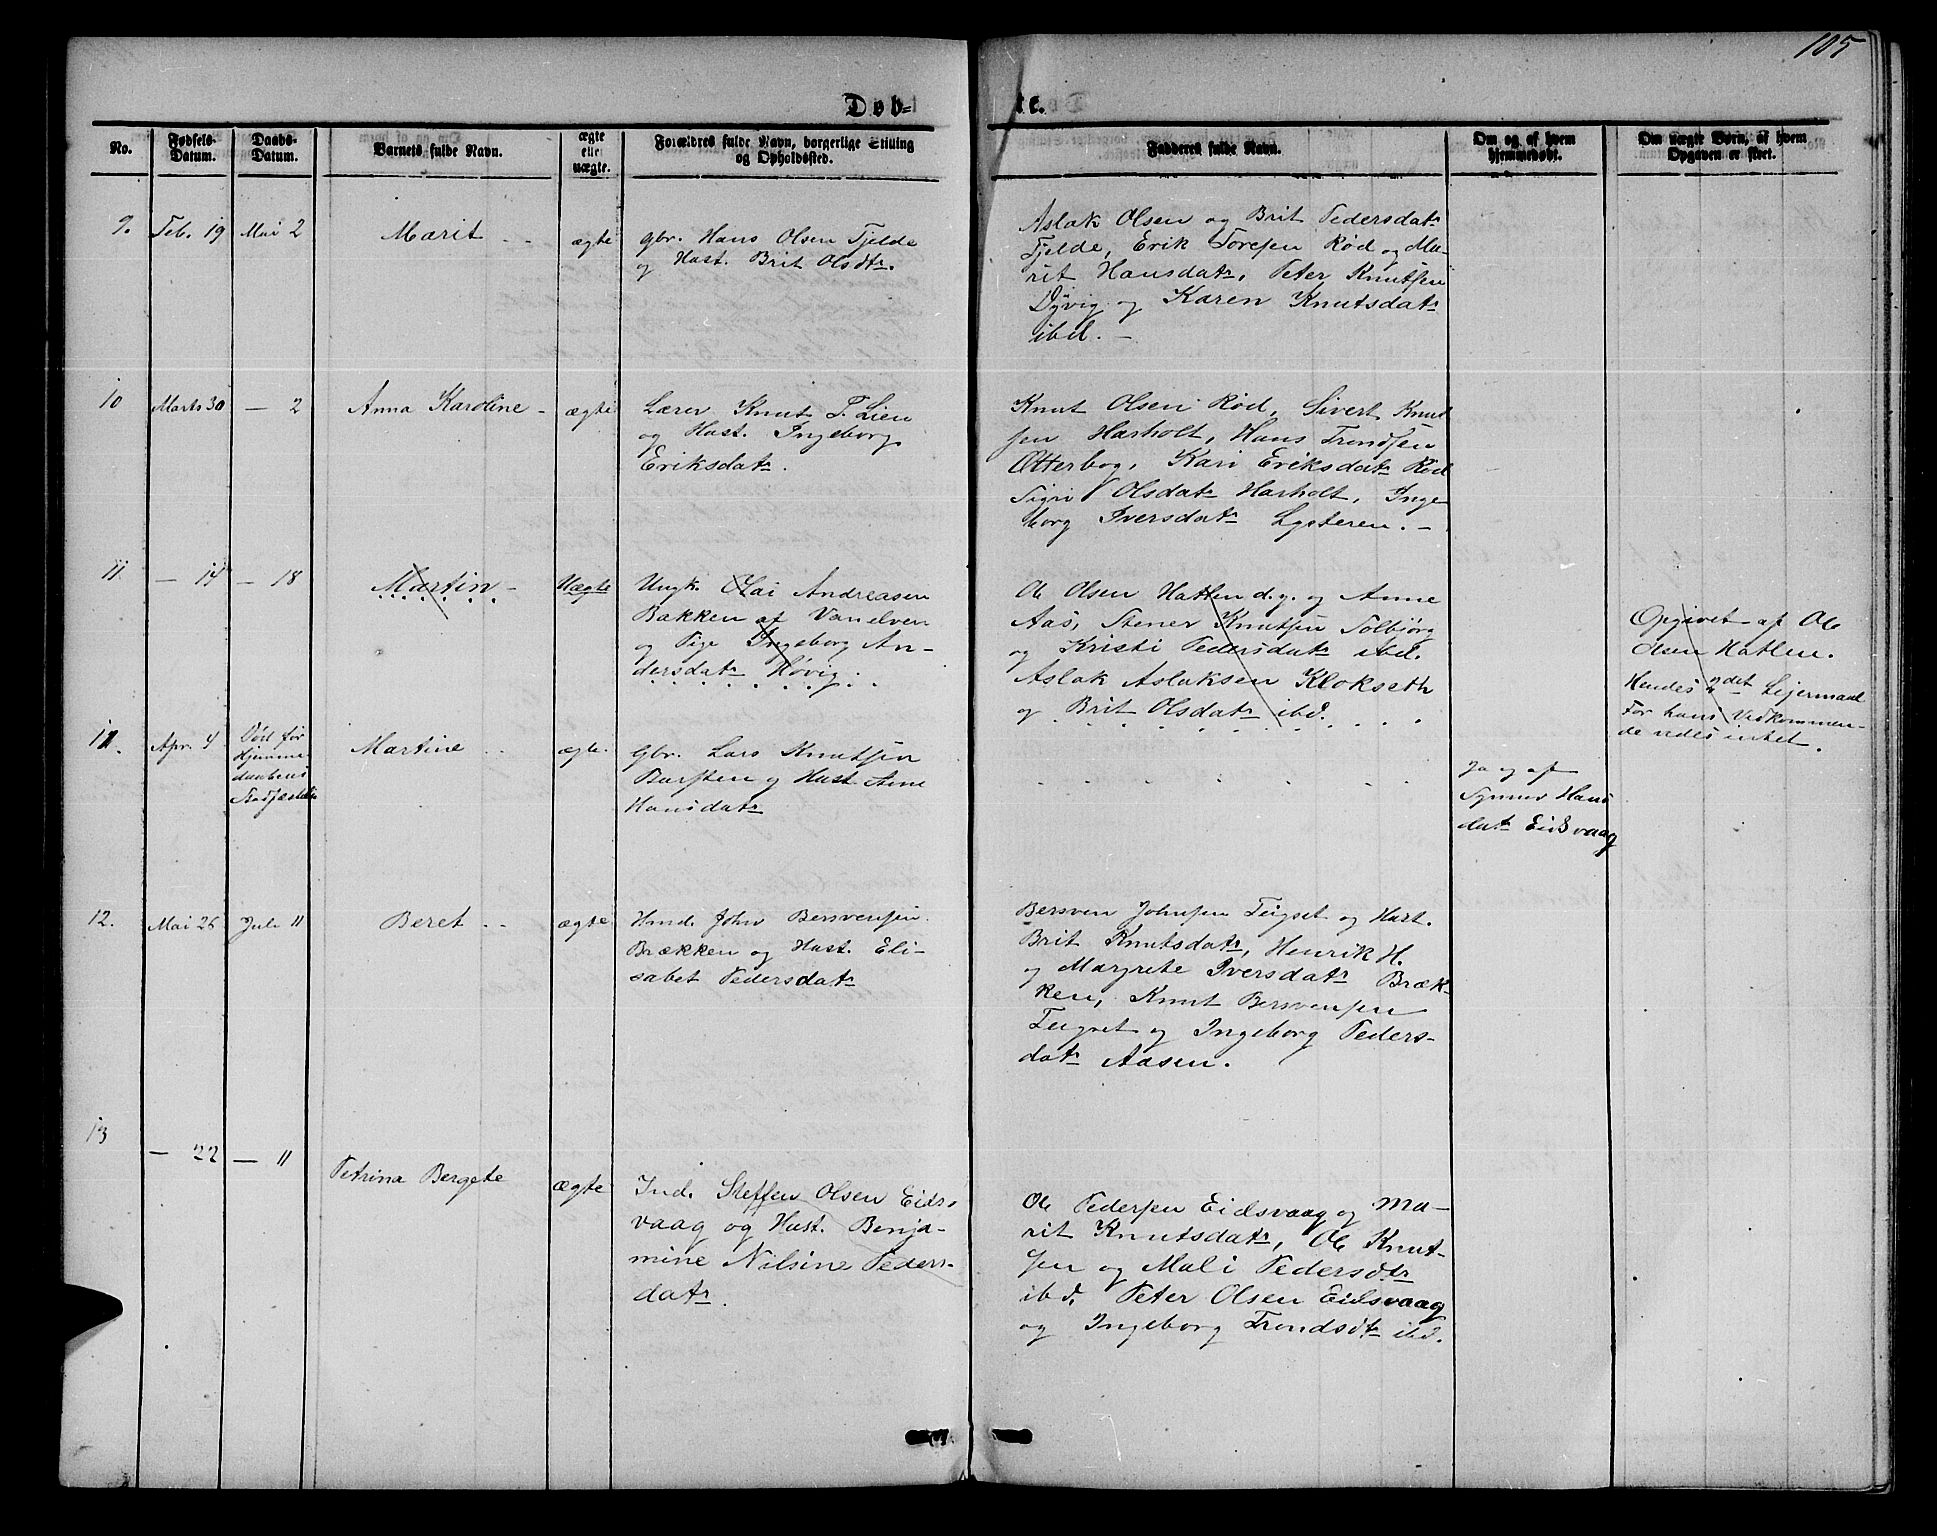 105
Døb=
te.
No.
Fødsels-
Datum.
Daabs-
Datum.
Barnets fulde Navn.
ægte
eller
uægte.
Forældres fulde Navn, borgerlige Stilling
og Opholdssted.
Fadderes fulde Navn.
Om og af hvem
hjemmedøbt.
Om uægte Børn, af hvem
Opgaven er skeet.
9. Feb. 19 Mai 2 Marit - - ægte
gbr. Hans Olsen Tjelde
og Hust. Brit Olsdtr.
Aslak Olsen og Brit Pedersdatr
Tjelde, Erik Toresen Rød og Ma-
rit Hansdatr, Peter Knutsen
Dyvig og Karen Knutsdatr
ibd. -
10 Marts 30 — 2 Anna Karoline - ægte
Lærer Knut P. Lien
og Hust. Ingeborg
Eriksdatr.
Knut Olsen Rød, Sivert Knut
sen Harholt, Hans Trondsen
Otterbog, Kari Eriksdatr Rød
Sigri Olsdatr Harholt, Inge
borg Iversdatr Lysteren. -
11. — 14 — 18 Martin - Uægte
Ungk. Olai Andreasen
Bakken af Vanelven
og Pige Ingeborg An-
dersdatr Høvig.
Ole Olsen Hatlen d.y. og Anne
Aas, Stener Knutsen Solbjørg
og Kristi Pedersdatr ibd.
Aslak Aslaksen Klokseth
og Brit Olsdatr ibd.
Opgivet af Ole
Olsen Hatlen.
Hendes 2det Lejermaal
For hans Vedkommen-
de vides intet.
11. Apr. 4
Død før
Hjemme
daabens
Stadfæstelse
Martine - - ægte.
Gbr. Lars Knutsen
Bursten og Hust. Ane
Hansdatr
Ja og af
Synnev Hans
datr Eidsvaag
12. Mai 26 Juli 11 Beret - - ægte
Hmd. John Bersvensen
Brækken og Hust. Eli-
sabet Pedersdatr
Bersven Johnsen Teigset og Hust.
Brit Knutsdatr, Henrik H.
og Margrete Iversdatr Bræk-
ken, Knut Bersvensen
Teigset og Ingeborg Peders-
datr Aasen.
13 — 22 — 11 Petrina Bergete ægte
Ind. Steffen Olsen Eids-
vaag og Hust. Benja-
mine Nilsine Peders-
datr.
Ole Pedersen Eidsvaag og Ma-
rit Knutsdatr, Ole Knut-
sen og Mali Pedersdtr
ibd. Peter Olsen Eidsvaag
og Ingeborg Trondsdtr ibd.